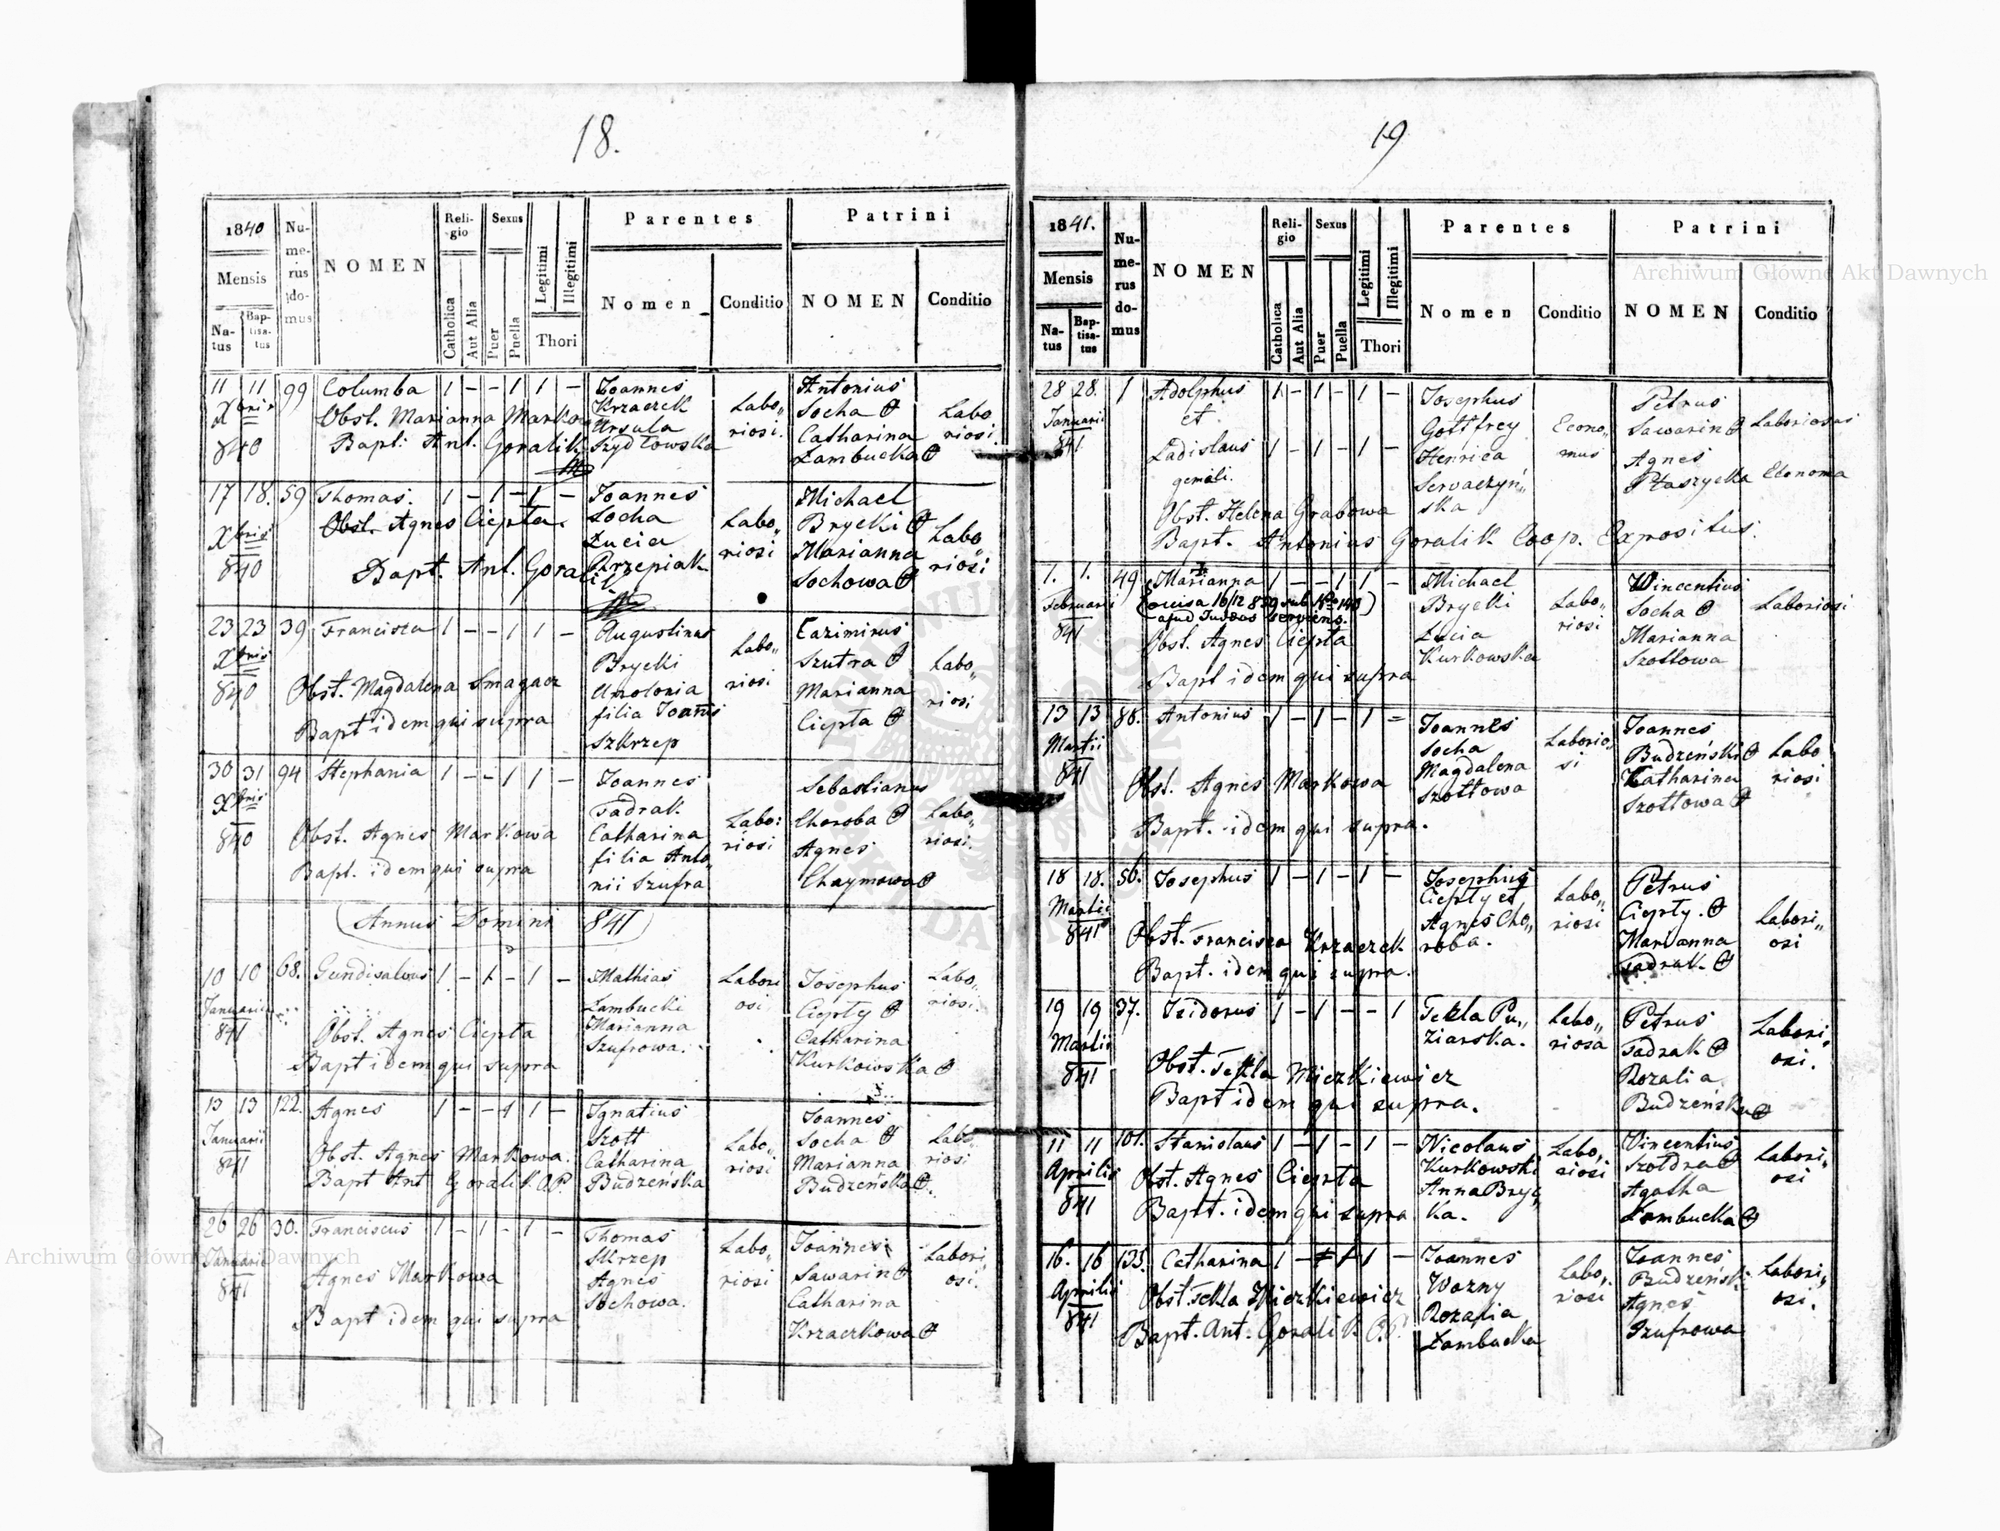 18.
1840
Numerus domus
NOMEN
Religio
Sexus
Legitimi
Illegitimi
Parentes
Patrini
Mensis
Natus
Baptisatus
Catholica
Aut Alia
Puer
Puella
Thori
Nomen
Conditio
NOMEN
Conditio
11 11 99 Columba 1 - - 1 1 - Joannes Antonius
Xbris Krzaczek Labo„ Socha Labo
Obst. Marianna Marko Ursula riosi. Catharina riosi.
840 Bapt: Ant. Goralik Szydłowska Zambucka
17 18. 59 Thomas. 1 - 1 - 1 - Joannes Michael
Obst. Agnes Ciepta. Socha Labo„ Brycki Labo
Xbris Łucia riosi Marianna riosi
840 Bapt. Ant. Goralik Krzepiak Sochowa
23 23 39 Francisca 1 - - 1 1 - Augustinus Cazimirus
Xbris Brycki Labo„ Szutra Labo„
840 Obst. Magdalena Smagacz Apolonia riosi Marianna riosi
Bapt idem qui supra filia Joannis Ciepta
Szkrzep
30 31 94 Stephania 1 - - 1 1 - Joannes Sebastianus
Xbris Fadrak Labo: Choroba Labo„
840 Obst. Agnes Markowa Catharina riosi Agnes riosi.
Bapt. idem qui supra filia Anto„ Chaymowa
nii Szufra
Annus Domini 841
10 10 68. Gundisalvus 1 - 1 - 1 - Mathias Labori Josephus Labo„
Januarii Zambucki osi Ciepty riosi.
841 Obst. Agnes Ciepta Marianna Catharina
Bapt idem qui supra Szufrowa. Kurkowska
13 13 122. Agnes 1 - - 1 1 - Ignatius Joannes
Januarii Szott Labo„ Socha Labo„
841 Obst. Agnes Markowa. Catharina riosi Marianna riosi
Bapt Ant Goralik C.P. Budzeńska Budzeńska
26 26 30. Franciscus 1 - 1 - 1 - Thomas Joannes
Januarii Skrzep Labo„ Sawarin Labori„
841 Agnes Markowa Agnes riosi Catharina osi.
Bapt idem qui supra Sochowa. Krzaczkowa
19
1841.
Numerus domus
NOMEN
Religio
Sexus
Legitimi
Illegitimi
Parentes
Patrini
Mensis
Natus
Baptisatus
Catholica
Aut Alia
Puer
Puella
Thori
Nomen
Conditio
NOMEN
Conditio
28 28. 1 Adolphus 1 - 1 - 1 - Josephus Petrus
Januarii et Gottfrey Econo„ Sawarin Laboriosus
841 Ladislaus 1 - 1 - 1 - Henrica mus Agnes
gemeli. Servaczyń„ Ptaszycka Economa
Obst. Helena Grabowa ska
Bapt. Antonius Goralik Coop. Expositus.
1. 1. 49 Marianna 1 - - 1 1 - Michael Wincentius
Februarii (occisa 16/12 859 sub No 140) Brycki Labo„ Socha Laboriosi
841 apud Judaeos serviens. Łucia riosi Marianna
Obst. Agnes Ciepta Kurkowska Szottowa
Bapt idem qui supra
13 13 88. Antonius 1 - 1 - 1 - Joannes Joannes
Martii Socha Laborio„ Budzeński Labo
841 Obst. Agnes Markowa Magdalena si Catharina riosi
Szottowa Szottowa
Bapt. idem qui supra.
18 18. 56. Josephus 1 - 1 - 1 - Josephus Petrus
Martii Ciepty et Labo„ Ciepty. Labori„
841 Obst. Francisca Krzaczek Agnes Cho„ riosi Marianna osi
Bapt. idem qui supra. roba. Fadrak
19 19 37. Isidorus 1 - 1 - - 1 Tekla Pu„ Labo„ Petrus Labori„
Martii ziarska. riosa Fadrak osi.
841 Obst. Tekla Mickiewicz Rozalia
Bapt idem qui supra. Budzeńska
11 11 101. Stanislaus 1 - 1 - 1 - Nicolaus Labo„ Vincentius Labori„
Aprilis Obst. Agnes Ciepta Kurkowski riosi Szoldra osi
841 Bapt. idem qui supra Anna Bryc„ Agatha
ka. Zambucka
16. 16 133. Catharina 1 - 1 1 - Joannes Joannes
Aprilis Obst. Tekla Mickiewicz Wozny Labo„ Budzeński Labori„
841 Bapt. Ant. Goralik C.P. Rozalia riosi Agnes osi.
Zambucka Szufrowa
Archiwum Główne Akt Dawnych
Archiwum Główne Akt Dawnych